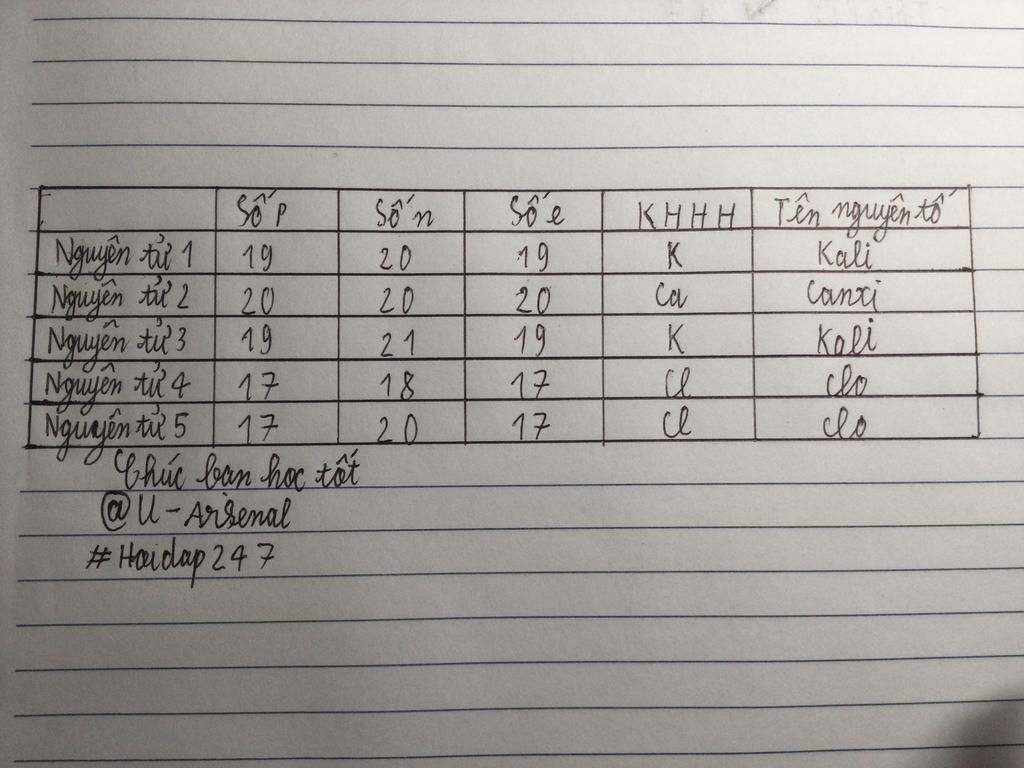 Số p Số n Số e KHHH Tên nguyên tố
Nguyên tử 1 19 20 19 K Kali
Nguyên tử 2 20 20 20 Ca Canxi
Nguyên tử 3 19 21 19 K Kali
Nguyên tử 4 17 18 17 Cl Clo
Nguyên tử 5 17 20 17 Cl Clo
Chúc bạn học tốt
@U-Arsenal
#Hoidap247